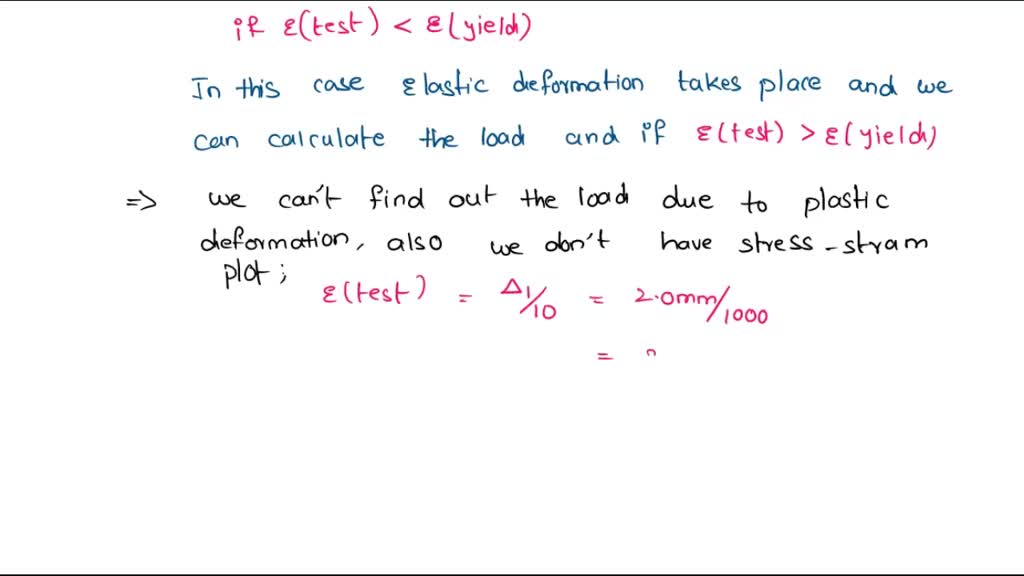 if ε(test) < ε(yield)
In this case Elastic deformation takes place and we
can calculate the load and if ε(test) > ε(yield)
=> we can't find out the load due to plastic
deformation, also we don't have stress-stram
plot;
ε(test) = Δ1/10 = 2.0mm/1000
=